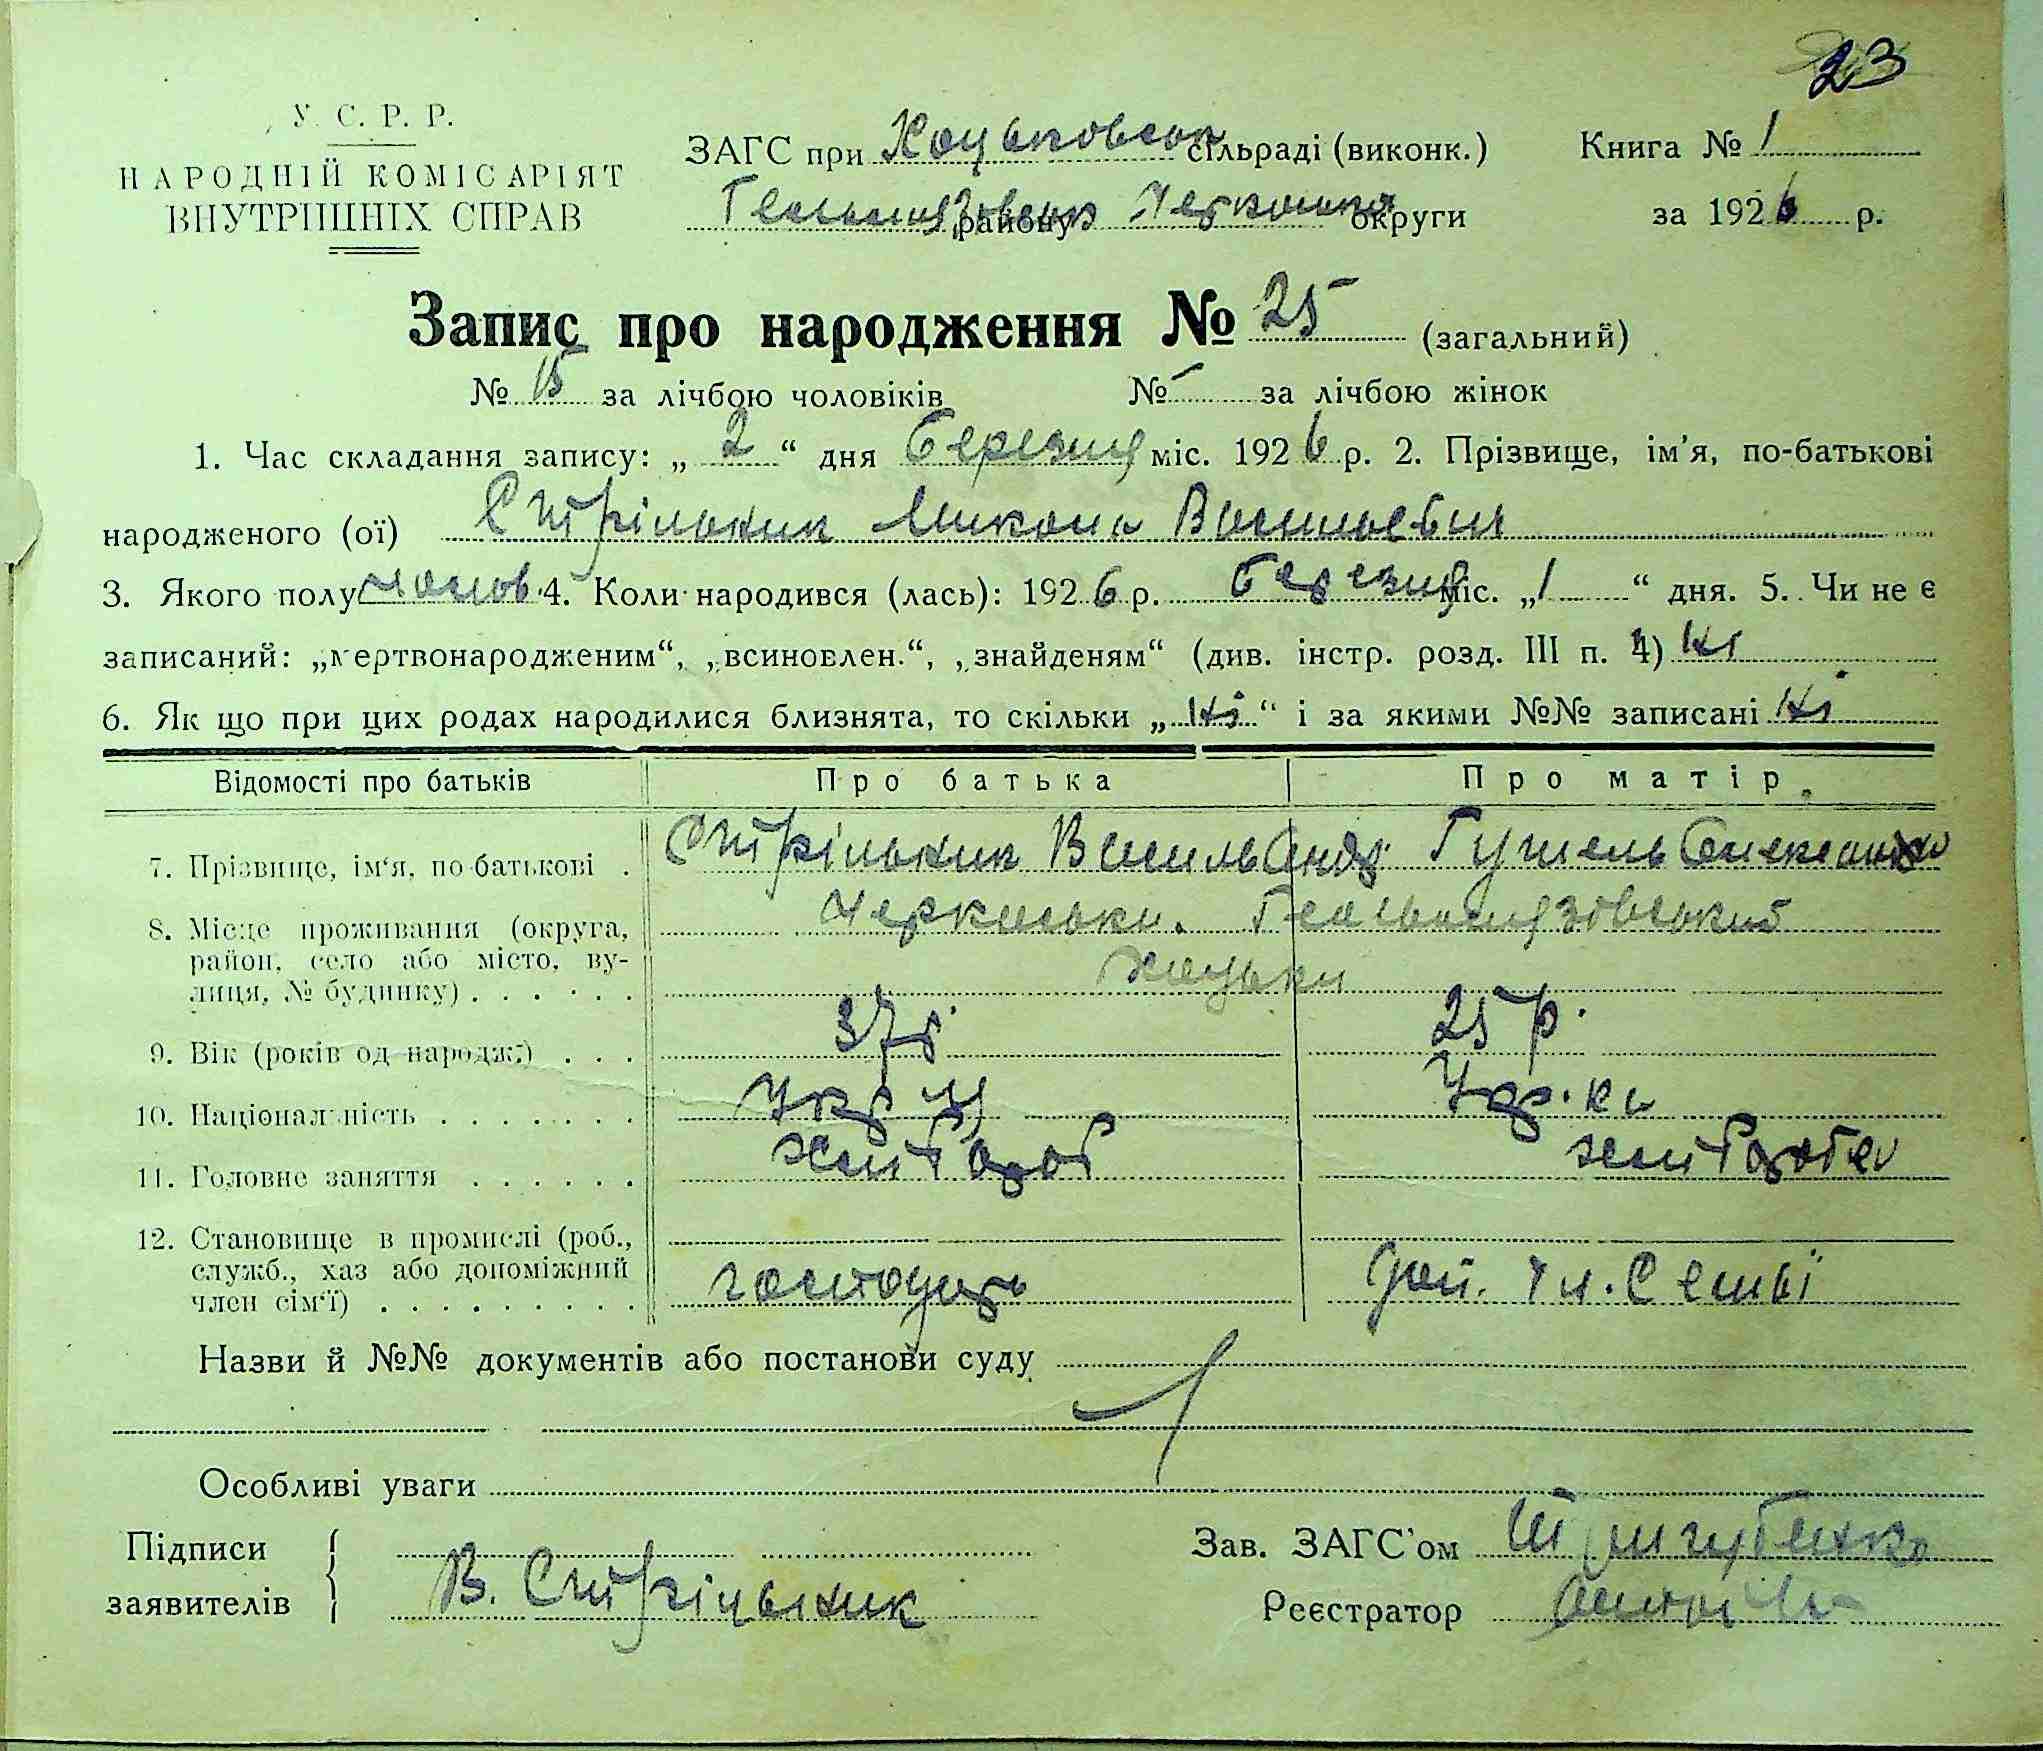 23
У. С. Р. Р.
НАРОДНІЙ КОМІСАРІЯТ
ВНУТРІШНІХ СПРАВ
ЗАГС при Хоцьковськ сільраді (виконк.)
Гельмязівськ району Черкаська округи
Книга № 1
за 1926 р.
Запис про народження № 25 (загальний)
№ 15 за лічбою чоловіків № - за лічбою жінок
1. Час складання запису: „ 2 “ дня березня міс. 1926 р. 2. Прізвище, ім'я, по-батькові
народженого (ої) Стрільник Микола Васильевич
3. Якого полу чолов. 4. Коли народився (лась): 1926 р. березня міс. „1 “ дня. 5. Чи не є
записаний: „мертвонародженим“, „всиновлен.“, „знайденям“ (див. інстр. розд. III п. 4) ні
6. Як що при цих родах народилися близнята, то скільки „ ні “ і за якими №№ записані ні
Відомості про батьків Про батька Про матір
7. Прізвище, ім'я, по-батькові . Стрільник Василь Андр.
8. Місце проживання (округа, Черкаськи. Гельмязовський
район, село або місто, ву- Хоцьки
лиця, № будинку) . . . . . .
9. Вік (років од народж.) . . . 37 р. 25 р.
10. Національність . . . . . . . Укр-ц Укр-ка
11. Головне заняття . . . . . . хлібороб хліборобка
12. Становище в промислі (роб.,
служб., хаз або допоміжний господарь доп. чл. семьї
член сім'ї) . . . . . . . . .
Назви й №№ документів або постанови суду
Особливі уваги
Підписи
заявителів
В. Стрільник
Зав. ЗАГС'ом
Реєстратор